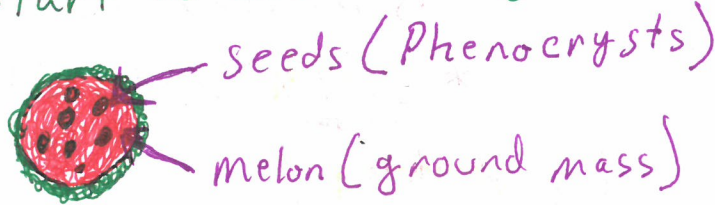 seeds (Phenocrysts)
melon (ground mass)